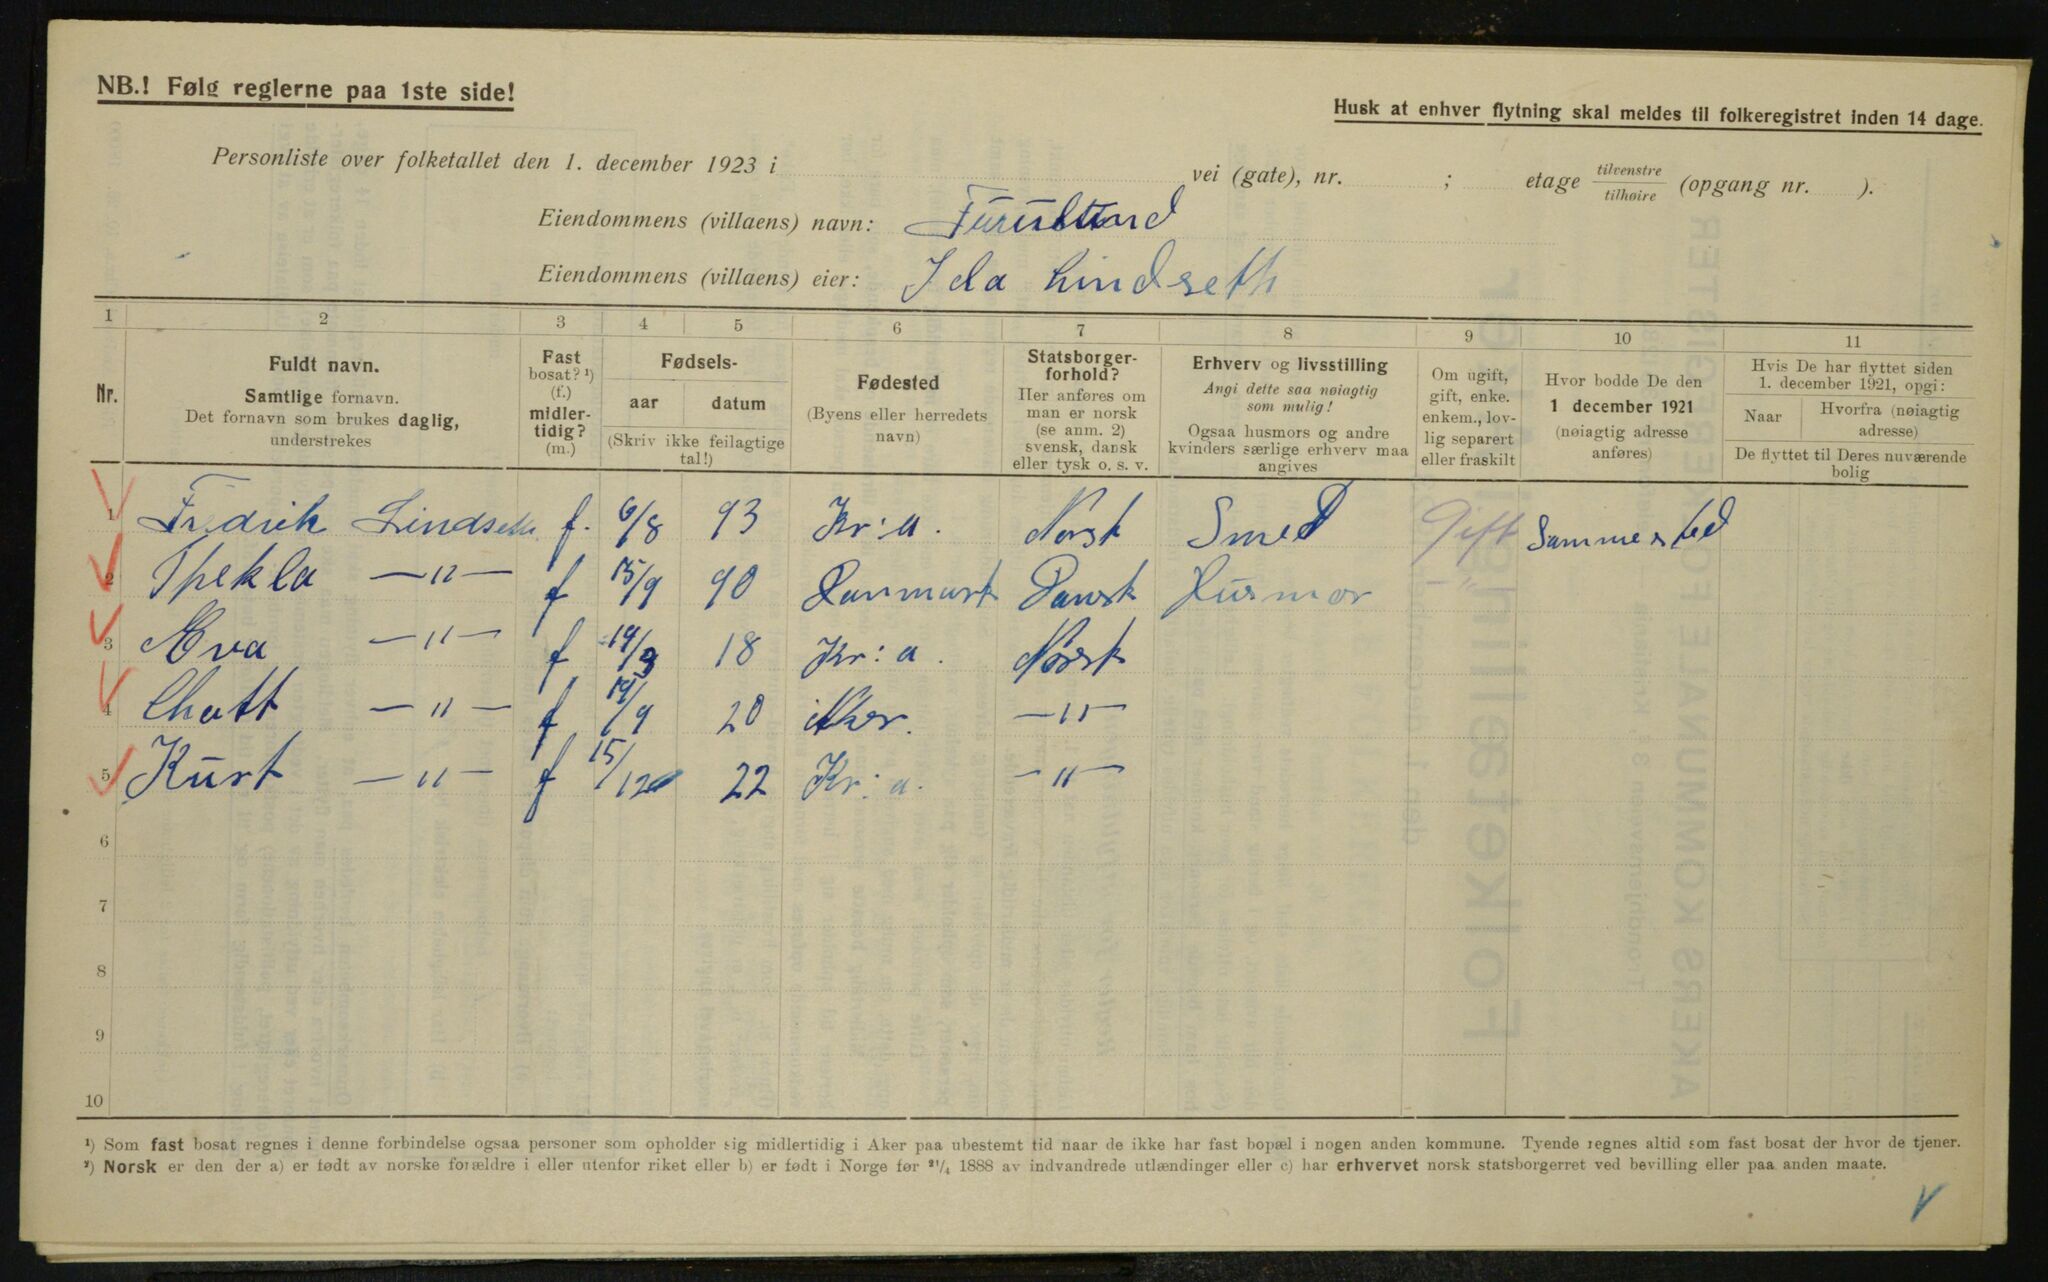 NB.! Følg reglerne paa 1ste side!
Husk at enhver flytning skal meldes til folkeregistret inden 14 dage.
Personliste over folketallet den 1. december 1923 i vei (gate), nr. ; etage tilvenstre/tilhøire (opgang nr. ).
Eiendommens (villaens) navn: Furulund
Eiendommens (villaens) eier: Ida Lindseth
1 2 3 4 5 6 7 8 9 10 11
Nr.
Fuldt navn.
Samtlige fornavn.
Det fornavn som brukes daglig,
understrekes
Fast
bosat? ¹)
(f.)
midler-
tidig?
(m.)
Fødsels-
aar datum
(Skriv ikke feilagtige
tal!)
Fødested
(Byens eller herredets
navn)
Statsborger-
forhold?
Her anføres om
man er norsk
(se anm. 2)
svensk, dansk
eller tysk o. s. v.
Erhverv og livsstilling
Angi dette saa nøiagtig
som mulig!
Ogsaa husmors og andre
kvinders særlige erhverv maa
angives
Om ugift,
gift, enke.
enkem., lov-
lig separert
eller fraskilt
Hvor bodde De den
1 december 1921
(nøiagtig adresse
anføres)
Hvis De har flyttet siden
1. december 1921, opgi:
Naar Hvorfra (nøiagtig
adresse)
De flyttet til Deres nuværende
bolig
1 Fredrik Lindseth f. 6/8 93 Kr:a. Norsk Smed Gift Sammested
2 Thekla —"— f 15/9 90 Danmark Dansk Husmor "
3 Eva —"— f 14/3 18 Kr:a. Norsk
4 Chatt —"— f 19/9 20 Aker. —"—
5 Kurt —"— f 15/12 22 Kr:a. —"—
6
7
8
9
10
¹) Som fast bosat regnes i denne forbindelse ogsaa personer som opholder sig midlertidig i Aker paa ubestemt tid naar de ikke har fast bopæl i nogen anden kommune. Tyende regnes altid som fast bosat der hvor de tjener.
²) Norsk er den der a) er født av norske forældre i eller utenfor riket eller b) er født i Norge før ²¹/₄ 1888 av indvandrede utlændinger eller c) har erhvervet norsk statsborgerret ved bevilling eller paa anden maate.